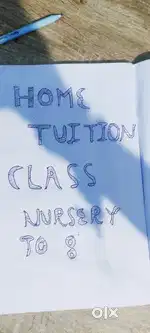 HOME
TUITION
CLASS
NURSERY
TO 8
OLX